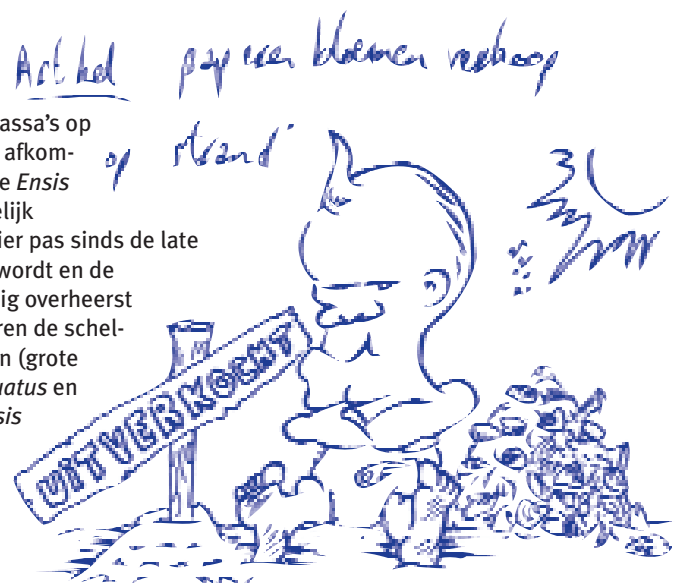 Artikel papieren bloemen verkoop
op strand
assa's op
afkom-
e Ensis
elijk
ier pas sinds de late
wordt en de
ig overheerst
ren de schel-
n (grote
uatus en
sis
UITVERKOCHT